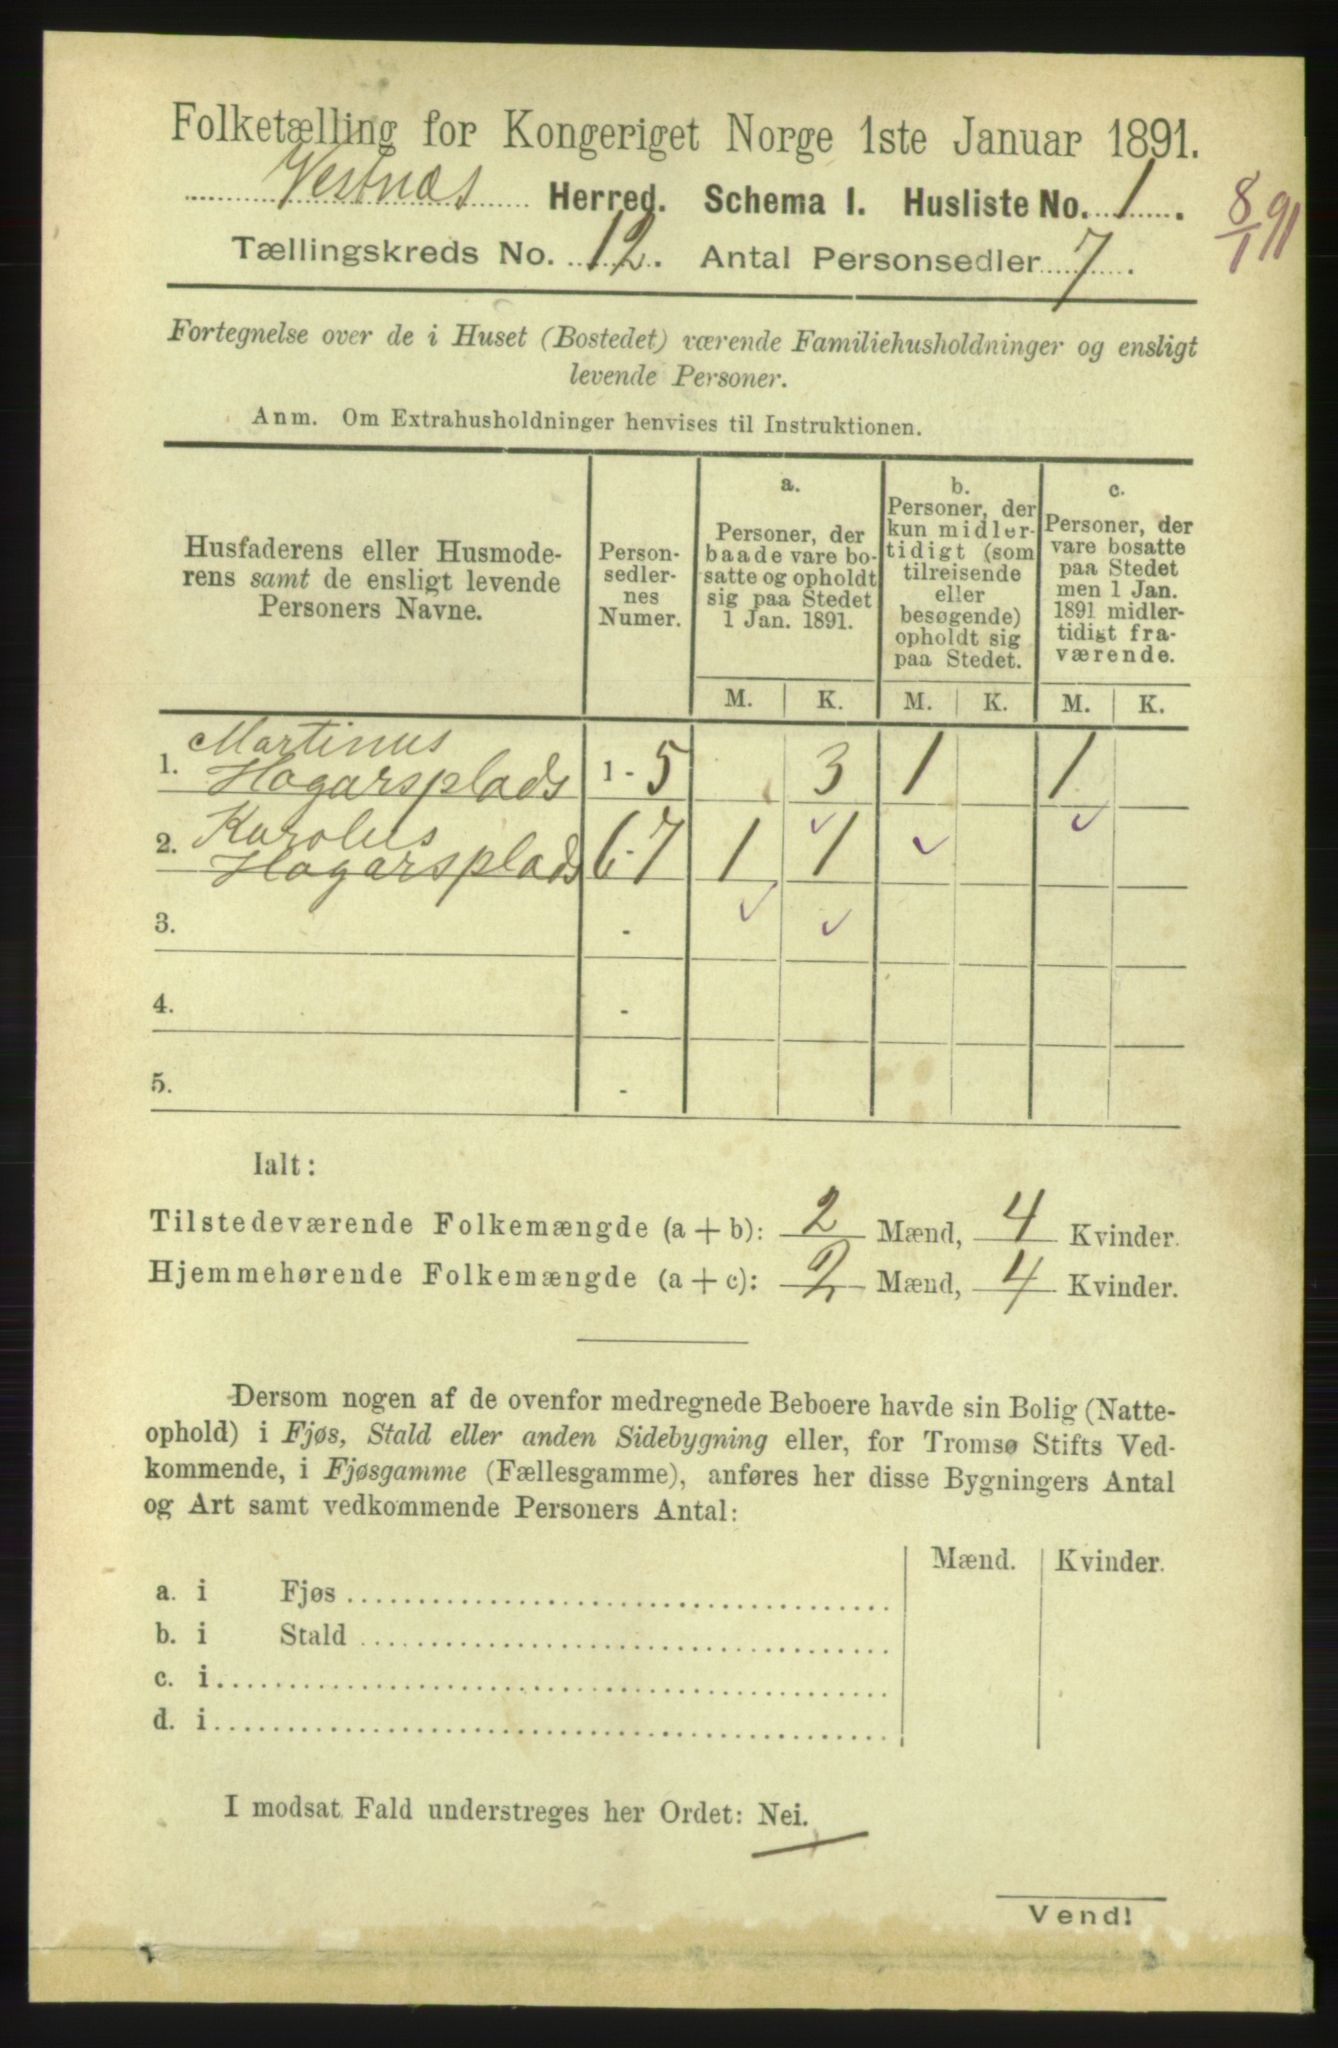 Folketælling for Kongeriget Norge 1ste Januar 1891.
Vestnæs Herred. Schema I. Husliste No. 1.
8/1 91
Tællingskreds No. 12. Antal Personsedler 7.
Fortegnelse over de i Huset (Bostedet) værende Familiehusholdninger og ensligt
levende Personer.
Anm. Om Extrahusholdninger henvises til Instruktionen.
Husfaderens eller Husmode-
rens samt de ensligt levende
Personers Navne.
Person-
sedler-
nes
Numer.
a.
Personer, der
baade vare bo-
satte og opholdt
sig paa Stedet
1 Jan. 1891.
b.
Personer, der
kun midler-
tidigt (som
tilreisende
eller
besøgende)
opholdt sig
paa Stedet.
c.
Personer, der
vare bosatte
paa Stedet
men 1 Jan.
1891 midler-
tidigt fra-
værende.
M. K. M. K. M. K.
Martinus
1. Hagarsplads 1 - 5 3 1 1
Karolus
2. Hagarsplads 6-7 1 1
3. -
4. -
5. -
Ialt:
Tilstedeværende Folkemængde (a + b): 2 Mænd, 4 Kvinder.
Hjemmehørende Folkemængde (a + c): 2 Mænd, 4 Kvinder.
Dersom nogen af de ovenfor medregnede Beboere havde sin Bolig (Natte-
ophold) i Fjøs, Stald eller anden Sidebygning eller, for Tromsø Stifts Ved-
kommende, i Fjøsgamme (Fællesgamme), anføres her disse Bygningers Antal
og Art samt vedkommende Personers Antal:
Mænd. Kvinder.
a. i Fjøs
b. i Stald
c. i
d. i
I modsat Fald understreges her Ordet: Nei.
Vend!